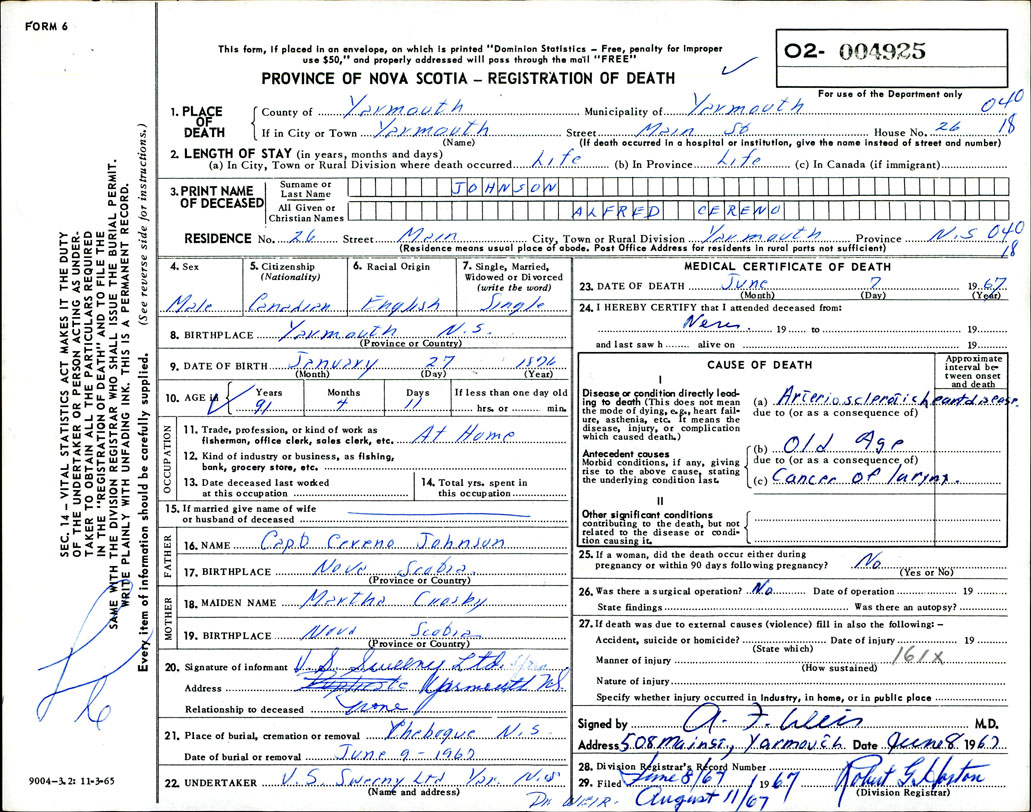 FORM 6
This form, if placed in an envelope, on which is printed "Dominion Statistics – Free, penalty for improper
use $50," and properly addressed will pass through the mail "FREE"
PROVINCE OF NOVA SCOTIA – REGISTRATION OF DEATH
O2- 004925
For use of the Department only
1. PLACE OF DEATH
County of Yarmouth Municipality of Yarmouth 040
If in City or Town Yarmouth Street Main St House No. 26 18
(Name) (If death occurred in a hospital or institution, give the name instead of street and number)
2. LENGTH OF STAY (in years, months and days)
(a) In City, Town or Rural Division where death occurred Life (b) In Province Life (c) In Canada (if immigrant)
3. PRINT NAME OF DECEASED
Surname or Last Name JOHNSON
All Given or Christian Names ALFRED CERENO
RESIDENCE No. 26 Street Main City, Town or Rural Division Yarmouth Province N.S 040
(Residence means usual place of abode. Post Office Address for residents in rural parts not sufficient) 18
4. Sex
Male
5. Citizenship
(Nationality)
Canadian
6. Racial Origin
English
7. Single, Married,
Widowed or Divorced
(write the word)
Single
8. BIRTHPLACE Yarmouth N.S.
(Province or Country)
9. DATE OF BIRTH January 27 1876
(Month) (Day) (Year)
10. AGE is
Years Months Days If less than one day old
91 4 11 hrs. or min.
OCCUPATION
11. Trade, profession, or kind of work as
fisherman, office clerk, sales clerk, etc. At Home
12. Kind of industry or business, as fishing,
bank, grocery store, etc.
13. Date deceased last worked
at this occupation
14. Total yrs. spent in
this occupation
15. If married give name of wife
or husband of deceased
FATHER
16. NAME Capt Cereno Johnson
17. BIRTHPLACE Nova Scotia
(Province or Country)
MOTHER
18. MAIDEN NAME Martha Crosby
19. BIRTHPLACE Nova Scotia
(Province or Country)
20. Signature of informant V. S. Sweeny Ltd.
Address Yarmouth NS.
Relationship to deceased none
21. Place of burial, cremation or removal Chebogue N.S.
Date of burial or removal June 9 - 1967
22. UNDERTAKER V.S. Sweeny Ltd Yar. N.S
(Name and address)
MEDICAL CERTIFICATE OF DEATH
23. DATE OF DEATH June 7 1967
(Month) (Day) (Year)
24. I HEREBY CERTIFY that I attended deceased from:
19 to 19
and last saw h alive on 19
CAUSE OF DEATH
Approximate
interval be-
tween onset
and death
I
Disease or condition directly lead-
ing to death (This does not mean
the mode of dying, e.g., heart fail-
ure, asthenia, etc. It means the
disease, injury, or complication
which caused death.)
(a) Arteriosclerotic heart disease.
due to (or as a consequence of)
Antecedent causes
Morbid conditions, if any, giving
rise to the above cause, stating
the underlying condition last.
(b) Old Age
due to (or as a consequence of)
(c) Cancer of larynx.
II
Other significant conditions
contributing to the death, but not
related to the disease or condi-
tion causing it.
25. If a woman, did the death occur either during
pregnancy or within 90 days following pregnancy? No
(Yes or No)
26. Was there a surgical operation? No Date of operation 19
State findings Was there an autopsy?
27. If death was due to external causes (violence) fill in also the following: –
Accident, suicide or homicide? Date of injury 19
(State which)
Manner of injury 161X
(How sustained)
Nature of injury
Specify whether injury occurred in industry, in home, or in public place
Signed by A. F. Weir M.D.
Address 508 Main St, Yarmouth Date June 8 1967
28. Division Registrar's Record Number
29. Filed June 8/67 1967 Robert G. Horton
August 11/67 (Division Registrar)
DR WEIR.
SEC. 14 – VITAL STATISTICS ACT MAKES IT THE DUTY
OF THE UNDERTAKER OR PERSON ACTING AS UNDER-
TAKER TO OBTAIN ALL THE PARTICULARS REQUIRED
IN THE "REGISTRATION OF DEATH" AND TO FILE THE
SAME WITH THE DIVISION REGISTRAR WHO SHALL ISSUE THE BURIAL PERMIT.
WRITE PLAINLY WITH UNFADING INK. THIS IS A PERMANENT RECORD.
Every item of information should be carefully supplied. (See reverse side for instructions.)
9004-3.2: 11-3-65